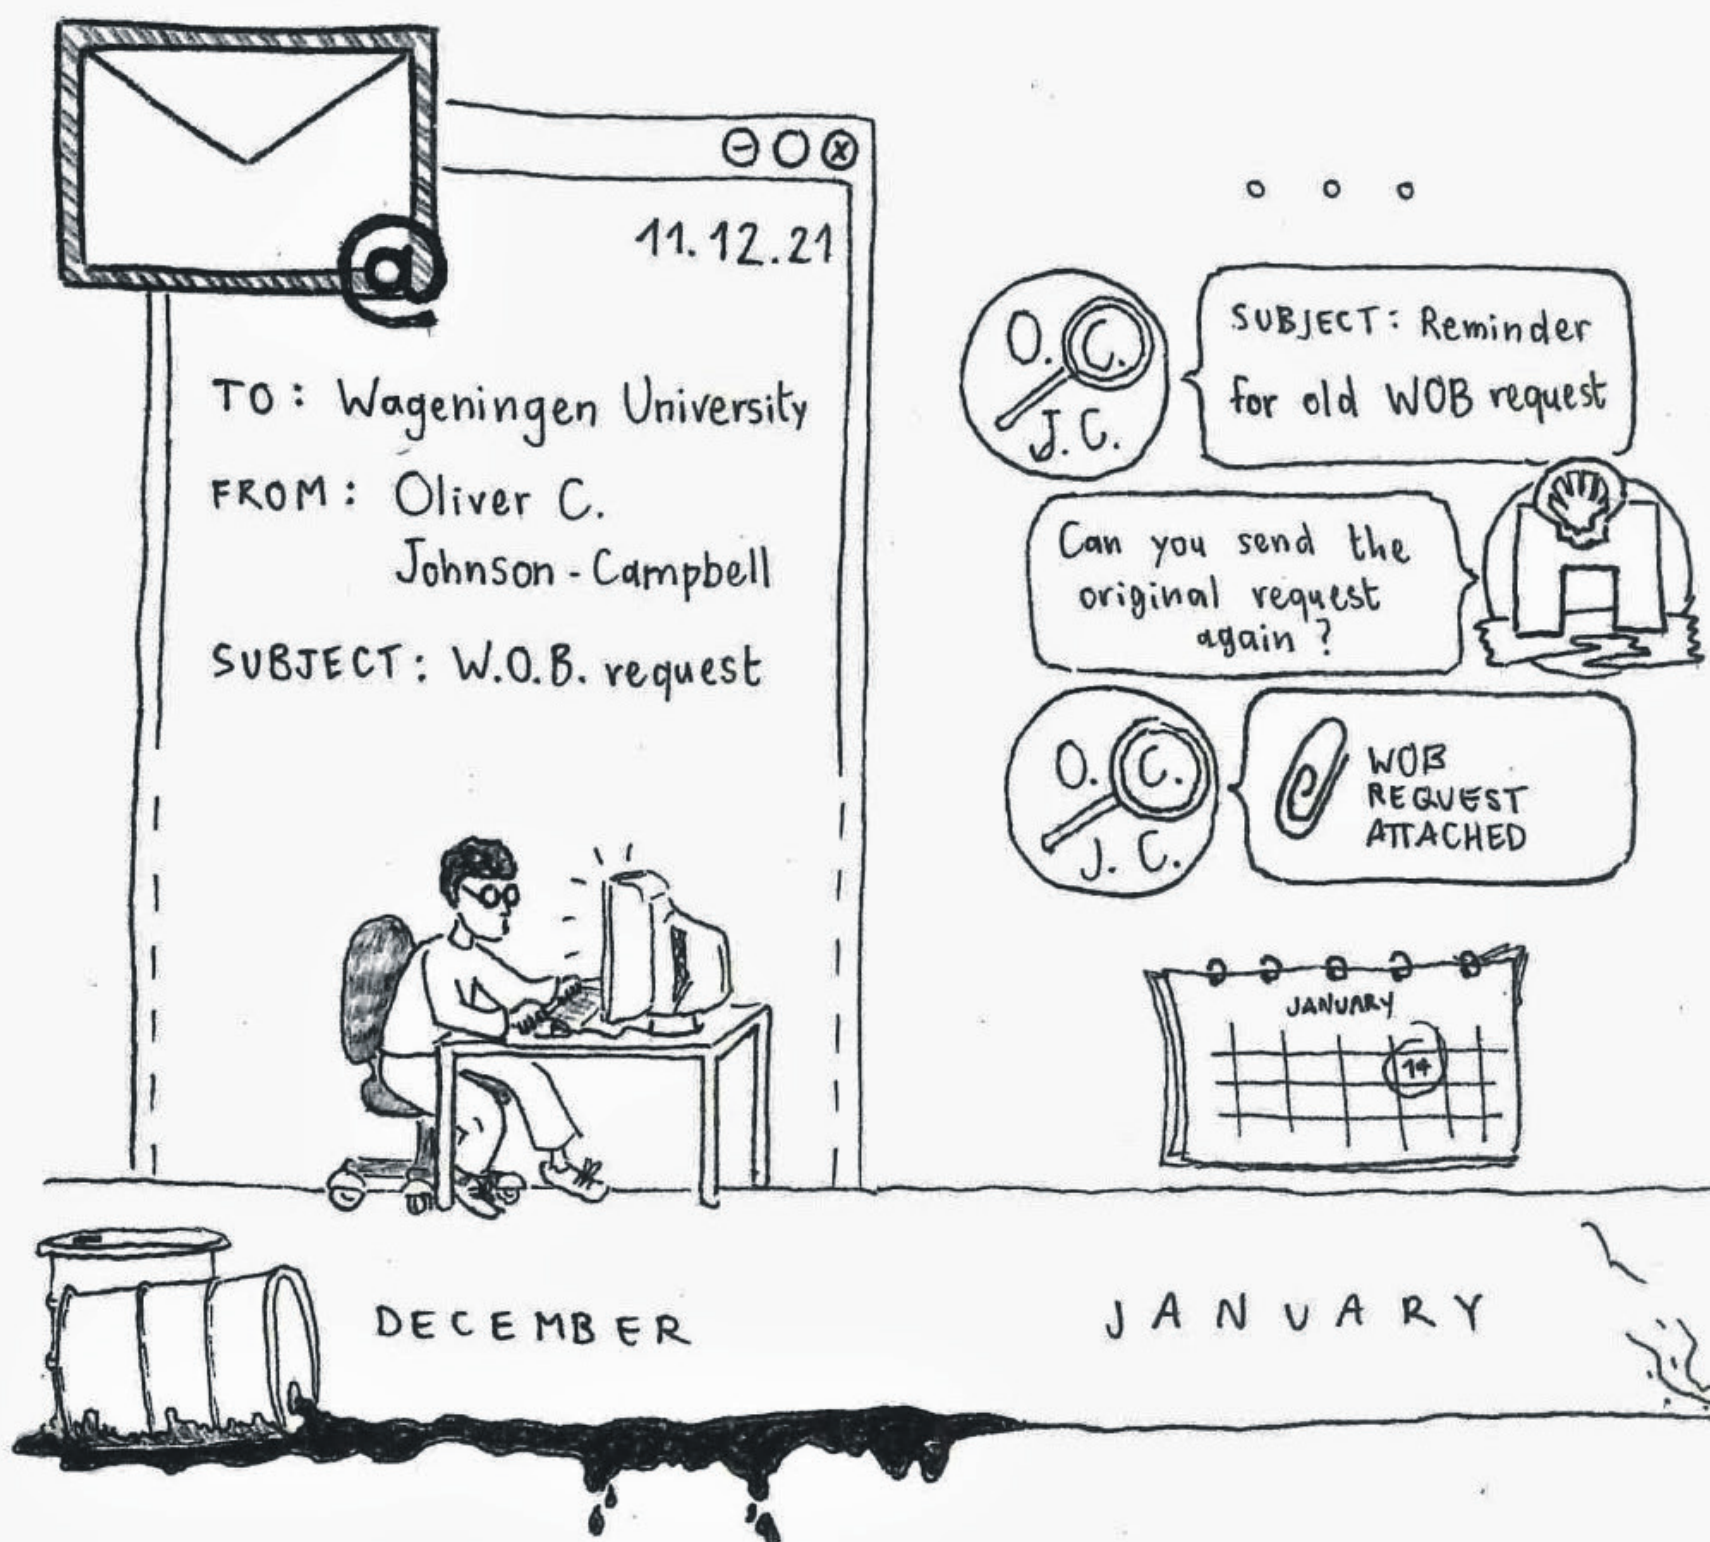 @
11.12.21
TO: Wageningen University
FROM: Oliver C.
Johnson-Campbell
SUBJECT: W.O.B. request
O. C.
J. C.
SUBJECT: Reminder
for old WOB request
Can you send the
original request
again?
O. C.
J. C.
WOB
REQUEST
ATTACHED
JANUARY
14
DECEMBER
JANUARY